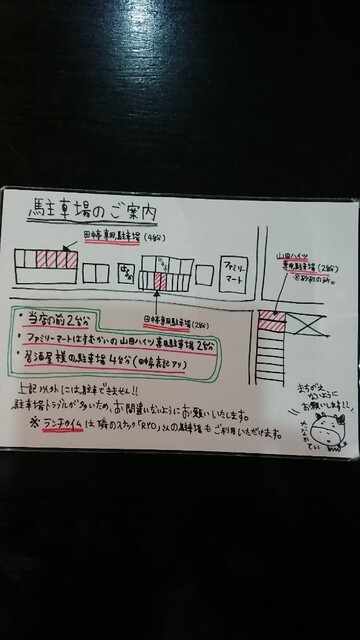 駐車場のご案内
田中亭専用駐車場(4台分)
ファミリー
マート
山田ハイツ
専用駐車場(2台分)
田中亭専用駐車場(2台分)
・当店の前2台分
・ファミリーマートはすむかいの山田ハイツ専用駐車場2台分
・居酒屋横の駐車場4台分(田中亭表記アリ)
上記以外には駐車できません!!
駐車場トラブルが多いため、お間違いないようにお願いします。
※ランチタイムは隣のスナック「RYO」さんの駐車場もご利用いただけます。
まちがえ
ないように
お願いします!!